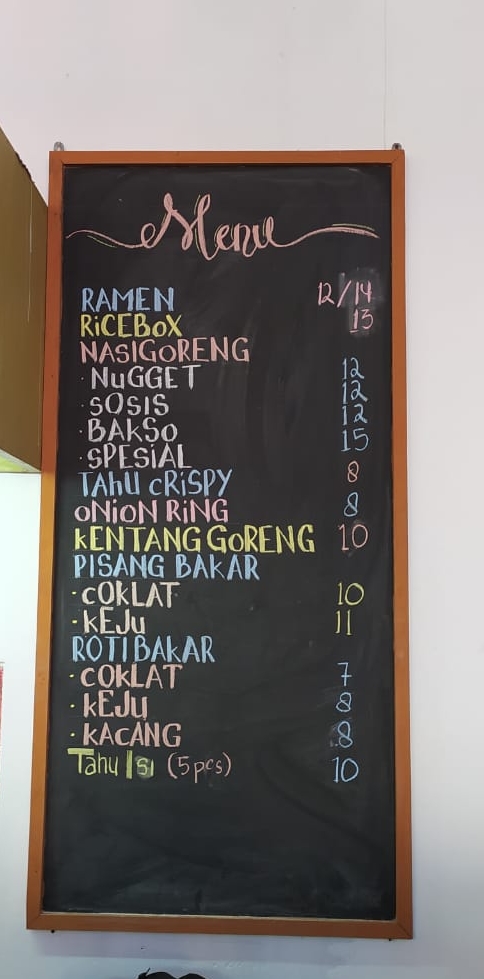 Menu
RAMEN 12/14
RiCEBoX 13
NASIGoRENG
· NuGGET 12
· SOSIS 12
· BAKSo 12
· SPESIAL 15
TAHU cRiSPY 8
oNioN RiNG 8
kENTANG GoRENG 10
PISANG BAKAR
· COKLAT 10
· kEJu 11
ROTI BAKAR
· COKLAT 7
· kEJu 8
· KACANG 8
Tahu Isi (5 pcs) 10